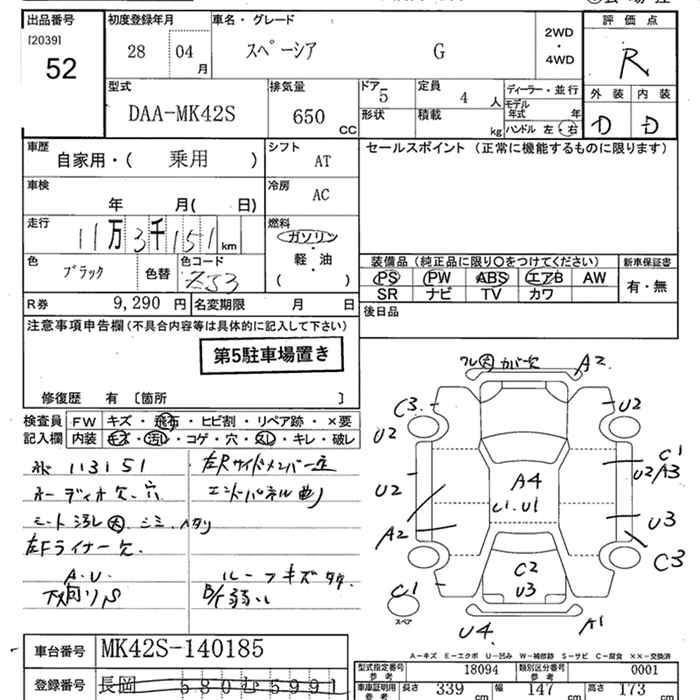 出品番号 初度登録年月 車名・グレード 評価点
[2039] 52
28 04 月 スペーシア G
2WD・4WD
R
型式 排気量 ドア 定員 ディーラー・並行 外装 内装
DAA-MK42S 650 CC 5 4 人
モデル年式 年
形状 積載 kg ハンドル 左・右
D D
車歴 シフト セールスポイント (正常に機能するものに限ります)
自家用・( 乗用 ) AT
車検 冷房
年 月( 日) AC
走行 燃料
11万3千151 km ガソリン・軽・油 ( )
色 色コード
ブラック 色替 ZJ3
装備品 (純正品に限り〇をつけてください) 新車保証書
PS PW ABS エアB AW 有・無
SR ナビ TV カワ
R券 9,290 円 名変期限 月 日
後日品
注意事項申告欄 (不具合内容等は具体的に記入して下さい)
第5駐車場置き
修復歴 有 〔箇所 〕
検査員記入欄 FW キズ・飛石・ヒビ割・リペア跡・×要
内装 キズ・汚し・コゲ・穴・スレ・キレ・破レ
113151
左Rサイドメンバー
オーディオ欠、穴
エンドパネル曲
シート汚レ大、シミ
左Fライナー欠、
A.U
ルーフキズ
下回りS
弱い
大 カバー欠 A2
C3 U2
U2 C1
U2/A3
U2 A4 U1
U3
A2 C3
C2 U3
C1
スペア
U4 A1
A-キズ E-エクボ U-凹み W-補修跡 S-サビ C-腐食 ××-交換済
車台番号 MK42S-140185
型式指定番号 参考 18094 類別区分番号 参考 0001
登録番号 長岡 580 む 5991
車庫証明用 参考 長さ 339 cm 幅 147 cm 高さ 173 cm